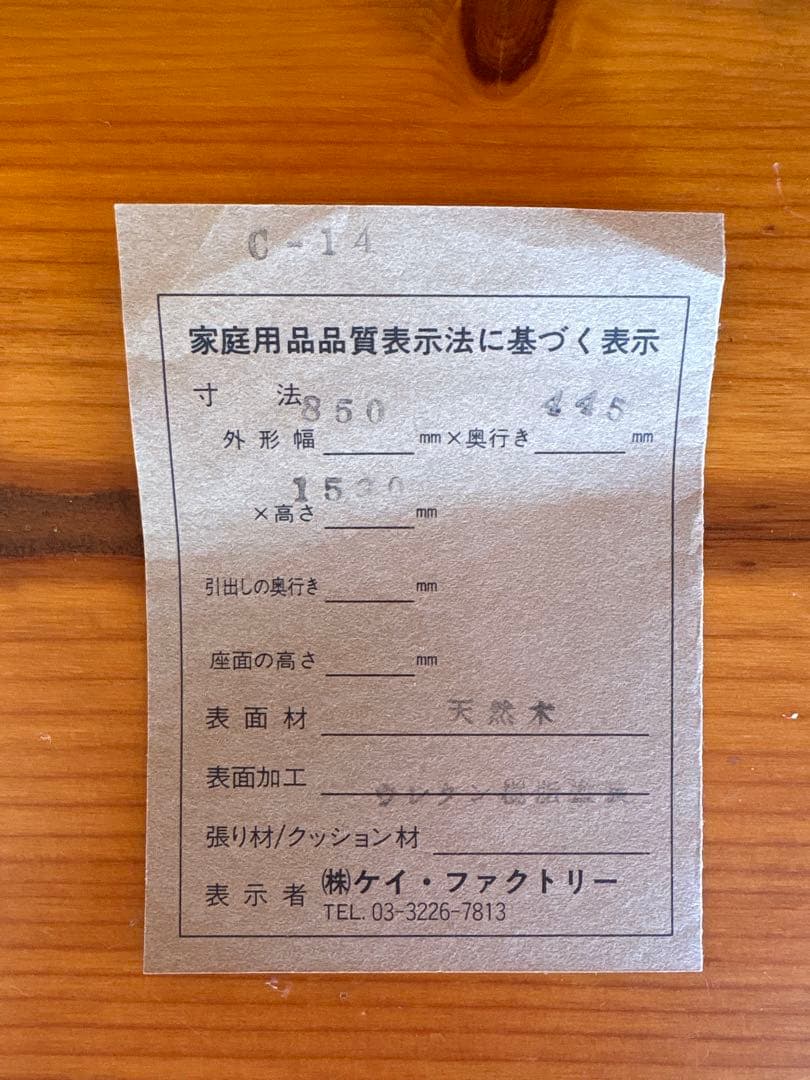 C-14
家庭用品品質表示法に基づく表示
寸 法
外形幅 850 mm×奥行き 445 mm
×高さ mm
引出しの奥行き mm
座面の高さ mm
表面材 天然木
表面加工 ウレタン樹脂塗装
張り材/クッション材
表示者 ㈱ケイ・ファクトリー
TEL. 03-3226-7813